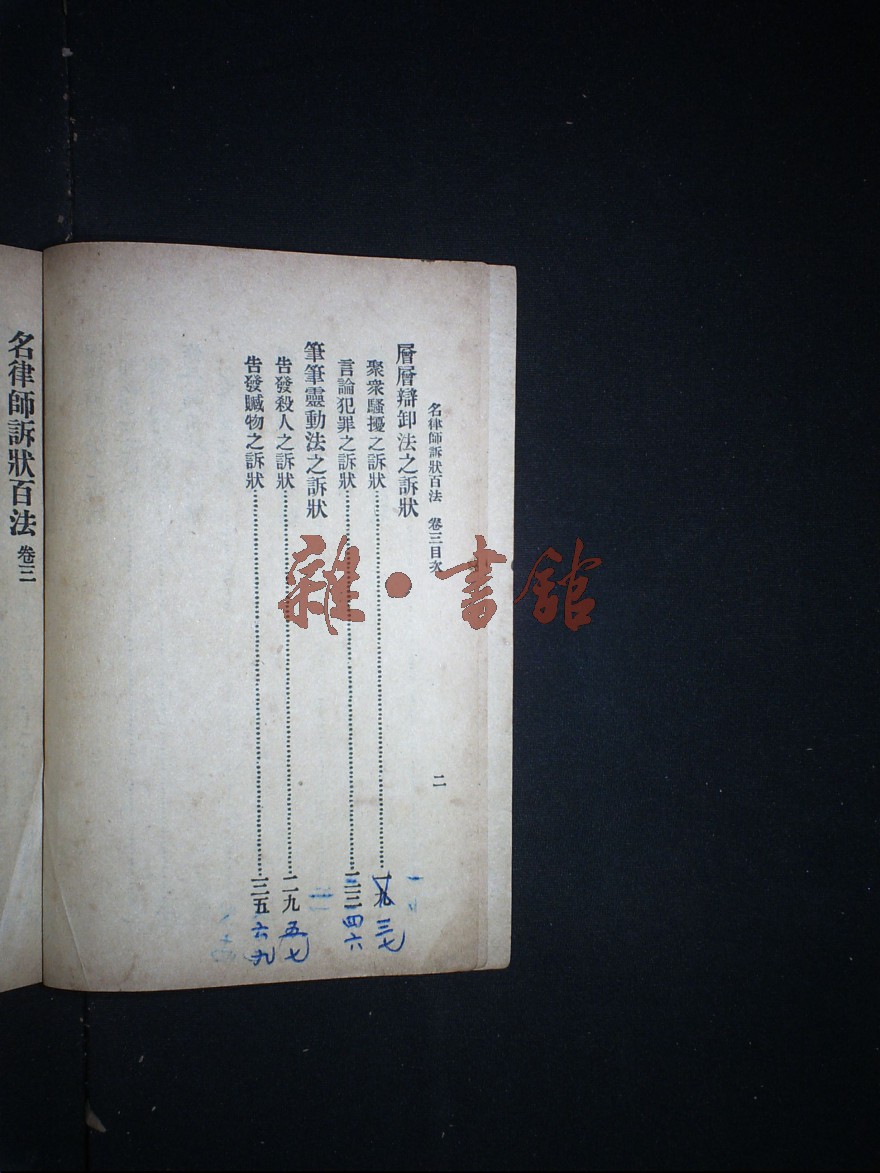 名律師訴狀百法　卷三目次
二
層層辯卸法之訴狀
聚衆騷擾之訴狀……一九 三七
言論犯罪之訴狀……二三 四六
筆筆靈動法之訴狀
告發殺人之訴狀……二九 五七
告發贓物之訴狀……三五 六九
名律師訴狀百法 卷三
雜·書館